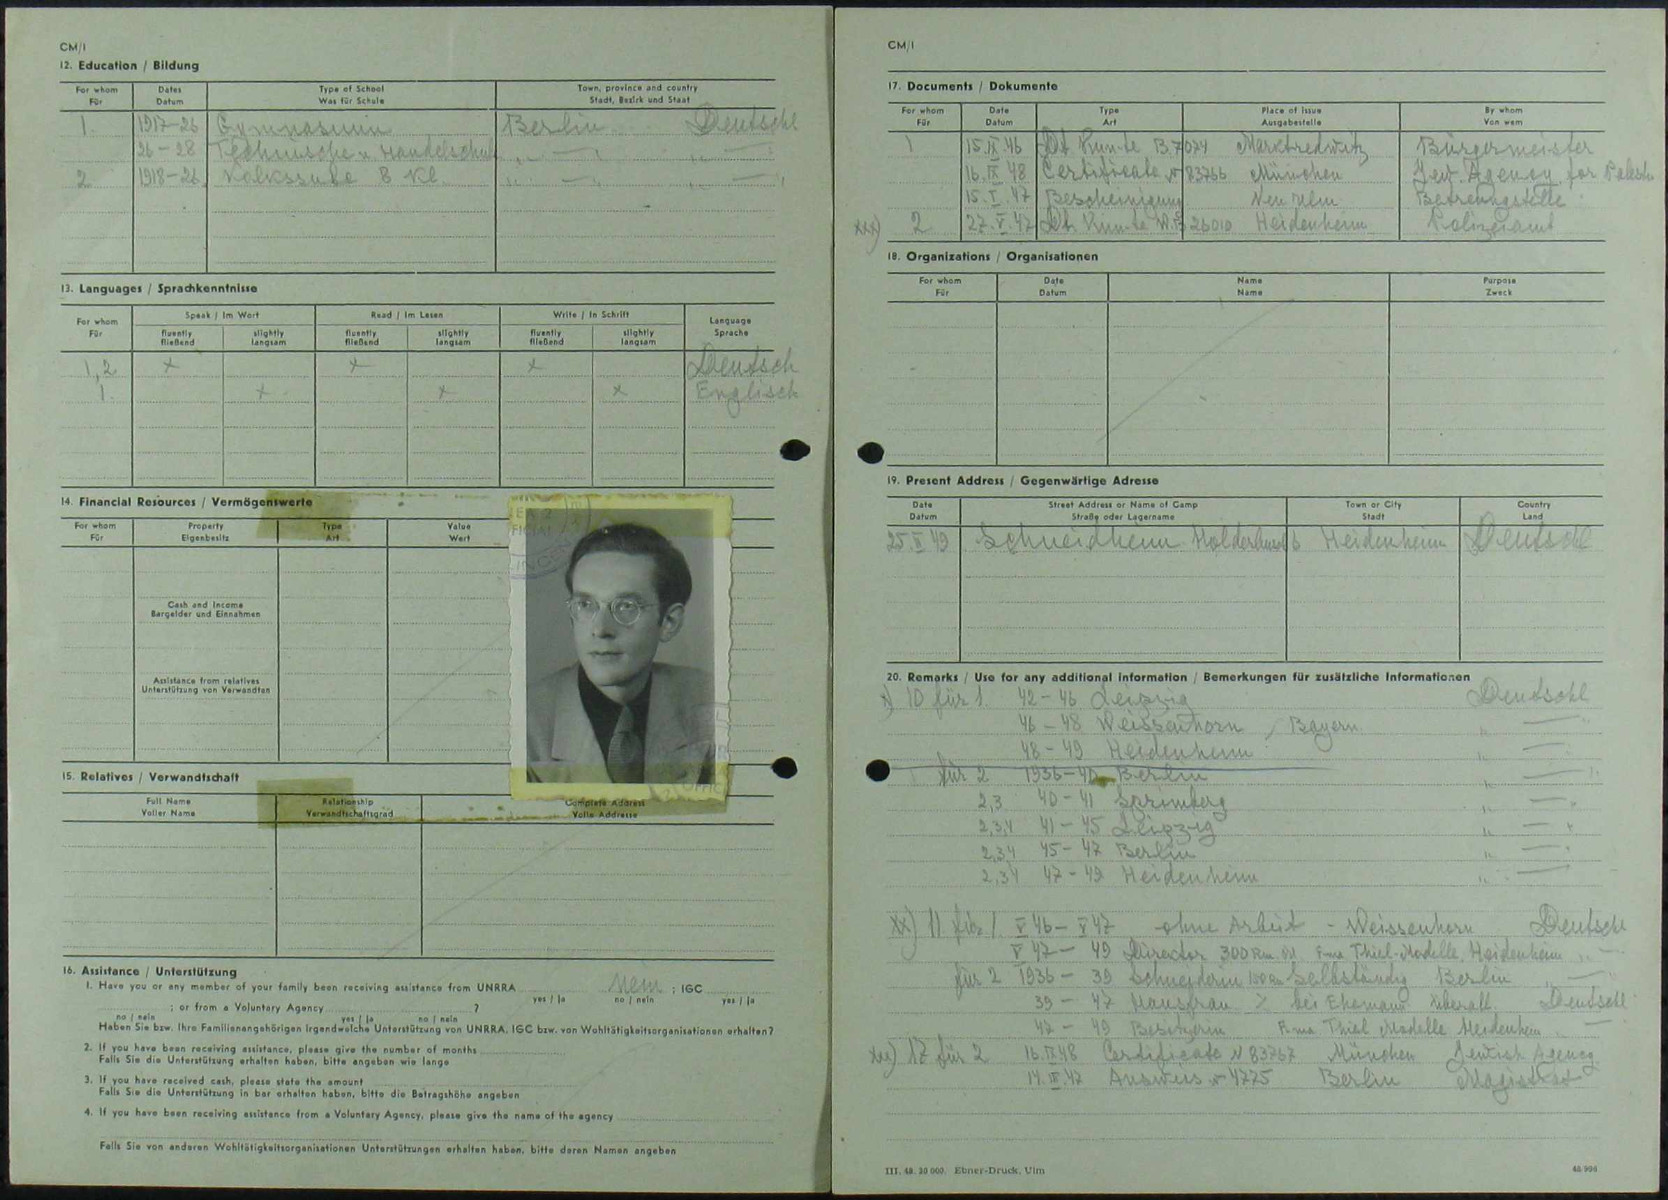 CM/I
12. Education / Bildung
For whom Für
Dates Datum
Type of School Was für Schule
Town, province and country Stadt, Bezirk und Staat
1. 1917-26 Gymnasium Berlin Deutschl
26-28 Technische u. Handelschule " — " "— "
2 1918-26 Volksschule 8 Kl. " — " " — "
13. Languages / Sprachkenntnisse
For whom Für
Speak / Im Wort
Read / Im Lesen
Write / In Schrift
Language Sprache
fluently fließend
slightly langsam
fluently fließend
slightly langsam
fluently fließend
slightly langsam
1,2 x x x Deutsch
1. x x x Englisch
14. Financial Resources / Vermögenswerte
For whom Für
Property Eigenbesitz
Type Art
Value Wert
Cash and Income
Bargelder und Einnahmen
Assistance from relatives
Unterstützung von Verwandten
15. Relatives / Verwandtschaft
Full Name Voller Name
Relationship Verwandtschaftsgrad
Complete Address Volle Addresse
16. Assistance / Unterstützung
1. Have you or any member of your family been receiving assistance from UNRRA nein ; IGC
yes / ja no / nein yes / ja
; or from a Voluntary Agency ?
no / nein yes / ja no / nein
Haben Sie bzw. Ihre Familienangehörigen irgendwelche Unterstützung von UNRRA, IGC bzw. von Wohltätigkeitsorganisationen erhalten?
2. If you have been receiving assistance, please give the number of months
Falls Sie die Unterstützung erhalten haben, bitte angeben wie lange
3. If you have received cash, please state the amount
Falls Sie die Unterstützung in bar erhalten haben, bitte die Betragshöhe angeben
4. If you have been receiving assistance from a Voluntary Agency, please give the name of the agency
Falls Sie von anderen Wohltätigkeitsorganisationen Unterstützungen erhalten haben, bitte deren Namen angeben
CM/I
17. Documents / Dokumente
For whom Für
Date Datum
Type Art
Place of issue Ausgabestelle
By whom Von wem
1 15.IX.46 Dt. Kennkte B.7074 Marktredwitz Bürgermeister
16.IX.48 Certificate N 83766 München Jew. Agency for Palest.
15.I.47 Bescheinigung Neu Ulm Betreungstelle
xxx) 2 27.V.47 Dt. Kennkte W.B 26010 Heidenheim Polizeiamt
18. Organizations / Organisationen
For whom Für
Date Datum
Name Name
Purpose Zweck
19. Present Address / Gegenwärtige Adresse
Date Datum
Street Address or Name of Camp Straße oder Lagername
Town or City Stadt
Country Land
Schneidheim Heidenheim Deutschl
20. Remarks / Use for any additional information / Bemerkungen für zusätzliche Informationen
x) 10 für 1. 42-46 Leipzig Deutschl
46-48 Weissenhorn / Bayern " — "
48-49 Heidenheim " — "
für 2 1936-40 Berlin " — "
2,3 40-41 Spremberg " — "
2,3,4 41-45 Leipzig " — "
2,3,4 45-47 Berlin " — "
2,3,4 47-49 Heidenheim " — "
xx) 11 für 1 V 46 - V 47 ohne Arbeit - Weissenhorn Deutschl
V 47 - 49 Direktor 300 Rm. Fma Thiel-Modelle, Heidenheim " —
für 2 1936-39 Schneiderin Selbständig Berlin " —
39-47 Hausfrau bei Ehemann überall. Deutschl
47-49 Besitzerin Fma Thiel Modelle Heidenheim " —
xxx) 17 für 2 16.IX.48 Certificate N 83767 München Jewish Agency
Ausweis N 4775 Berlin Magistrat
III. 48. 20 000. Ebner-Druck, Ulm